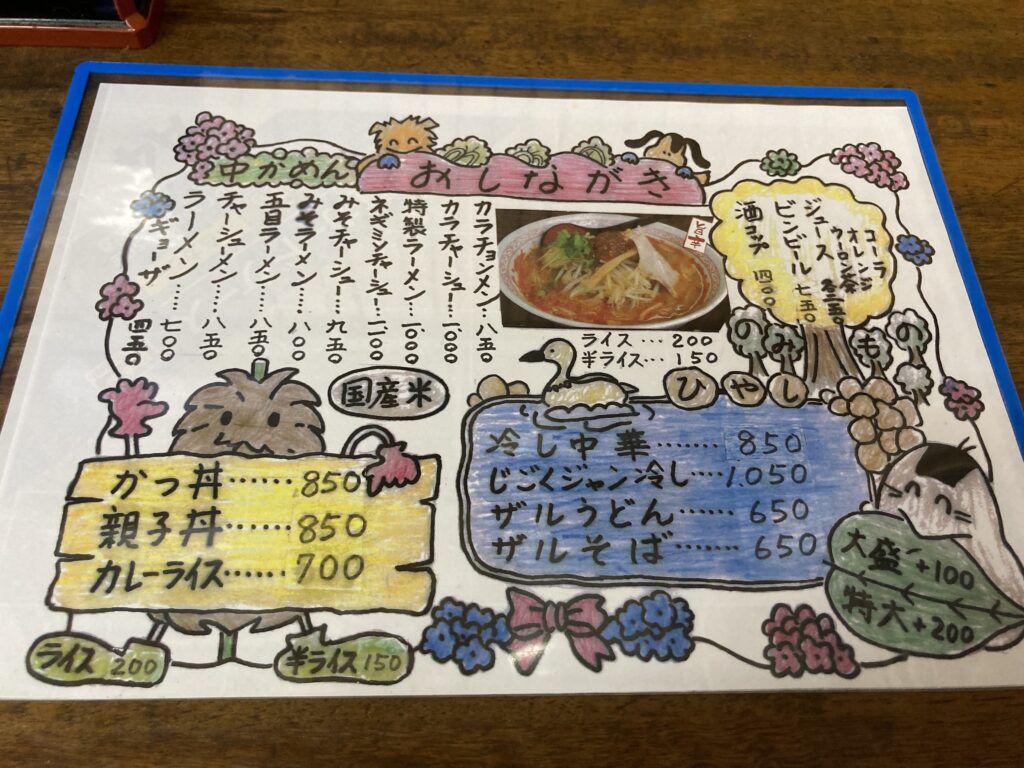 中かめん
おしながき
カラチョンメン…八五〇
カラチャーシュー…1.000
特製ラーメン…1.000
ネギミソチャーシュー…1.100
みそチャーシュー…九五〇
みそラーメン…八〇〇
五目ラーメン…八五〇
チャーシューメン…八五〇
ラーメン…七〇〇
ギョーザ 四五〇
ライス…200
半ライス…150
コーラ
オレンジ
ウーロン茶
ジュース 各二五〇
ビンビール 七五〇
酒コップ 四〇〇
のみもの
国産米
かつ丼……850
親子丼……850
カレーライス……700
ライス 200
半ライス 150
ひやし
冷し中華……850
じごくジャン冷し…1.050
ザルうどん……650
ザルそば……650
大盛+100
特大+200